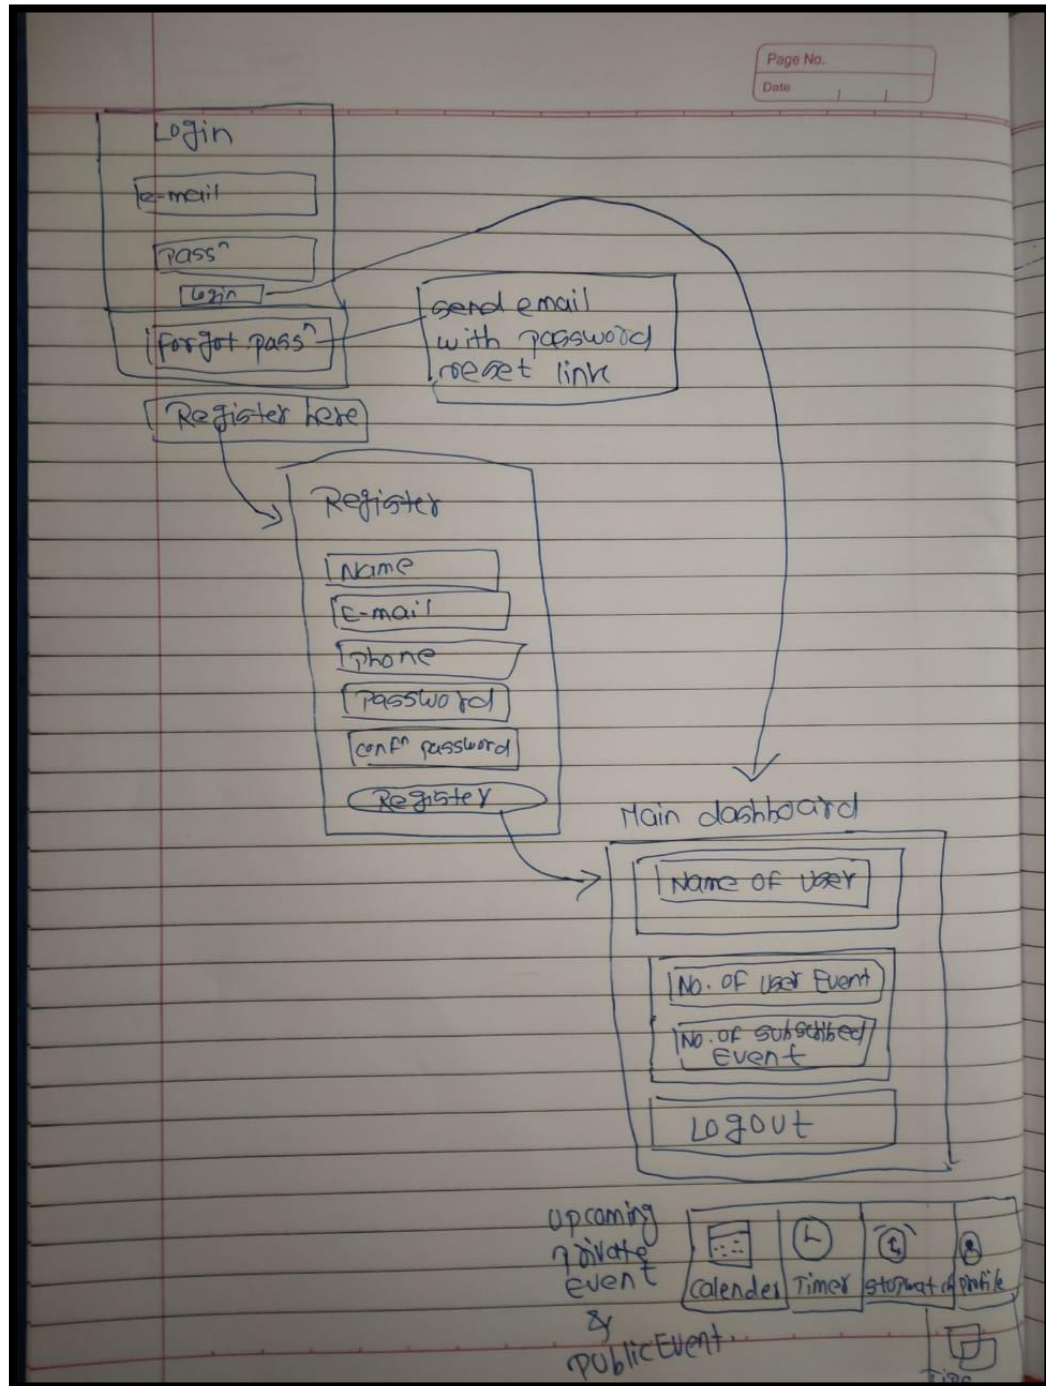 Page No.
Date
Login
e-mail
Passⁿ
Login
Forgot passⁿ
send email
with password
reset link
Register here
Register
Name
E-mail
phone
Password
confⁿ password
Register
Main dashboard
Name of user
No. of user Event
No. of subscribed
Event
Logout
upcoming
private
event
&
public Event.
Calender
Timer
stopwatch
profile